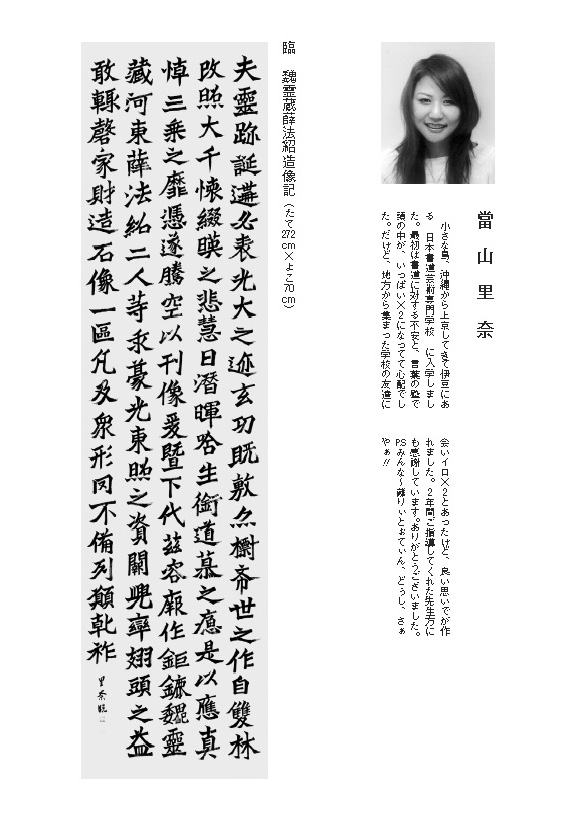 當山里奈
小さな島、沖縄から上京してきて伊豆にあ
る 日本書道芸術専門学校 に入学しまし
た。最初は書道に対する不安と、言葉の壁で
頭の中が、いっぱい×2になってて心配でし
た。だけど、地方から集まった学校の友達に
会いイロ×2とあったけど、良い思いでが作
れました。2年間ご指導してくれた先生方に
も感謝しています。ありがとうございました。
P.Sみんな~離りぃとぉてぃん、どぅし、さぁ
やぁ!!
臨 魏霊蔵薛法紹造像記(たて272cm×よこ70cm)
夫靈跡誕遘必表光大之迹玄功既敷亦標希世之作自雙林
改照大千懷綴暎之悲慧日潛暉唅生銜道慕之痛是以應真
悼三乘之靡憑遂騰空以刊像爰暨下代茲容厥作鉅鏕魏靈
藏河東薛法紹二人等求豪光東照之資闕兜率翅頭之益
敢輒磬家財造石像一區凡及衆形罔不備列願乾祚
里奈臨